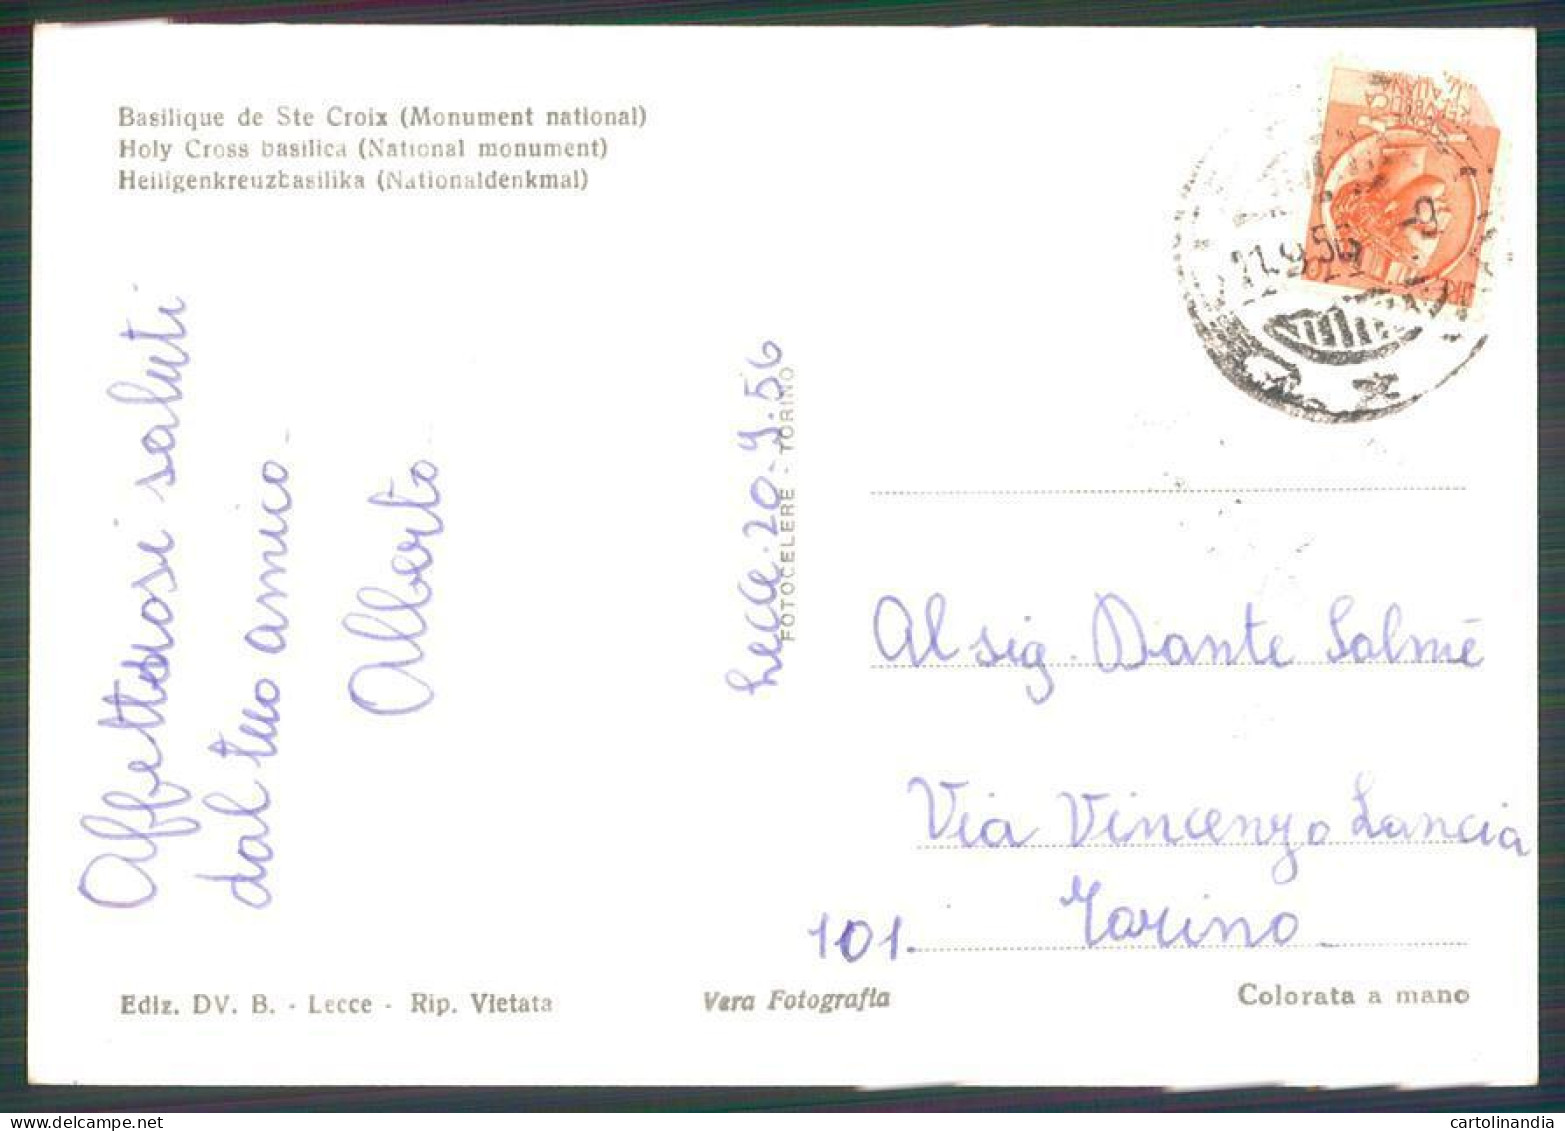 Basilique de Ste Croix (Monument national)
Holy Cross basilica (National monument)
Heiligenkreuzbasilika (Nationaldenkmal)
Affettuosi saluti
dal tuo amico
Alberto
Lecce. 20-9.56
FOTOCELERE - TORINO
21.9.56
REPVBBLICA
ITALIANA
Al sig. Dante Salmè
Via Vincenzo Lancia
101. Torino
Ediz. DV. B. - Lecce - Rip. Vietata
Vera Fotografia
Colorata a mano
cartolinandia